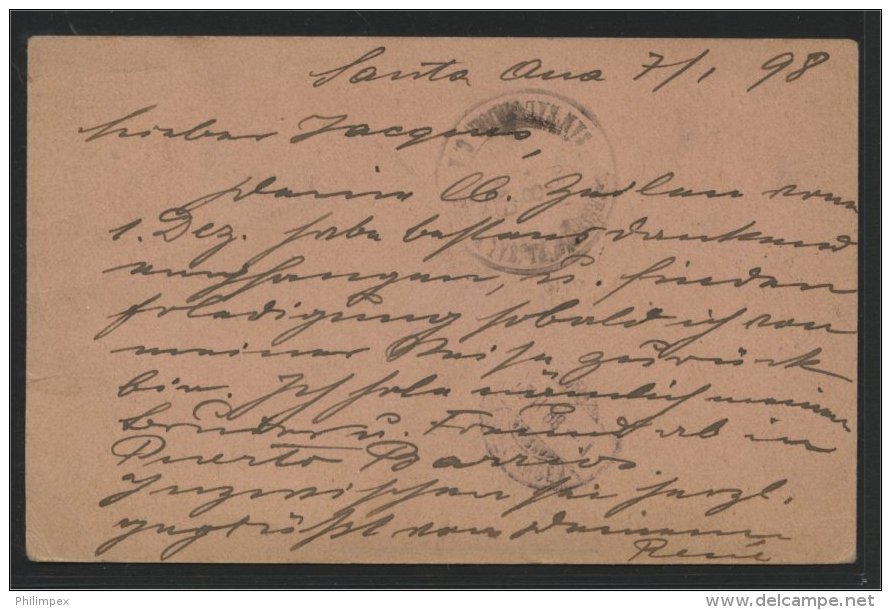 Santa Ana 7/1 98
Lieber Jacques,
Deine Zeilen vom
1. Dez. habe bestens dankend
empfangen, u. finden
Erledigung sobald ich von
meiner Reise zurück
bin. Ich hole nämlich meinen
Bruder u. Freund ab in
Puerto Barrios
Inzwischen sei herzl.
gegrüßt von Deinem
René
Philimpex
delcampe.net